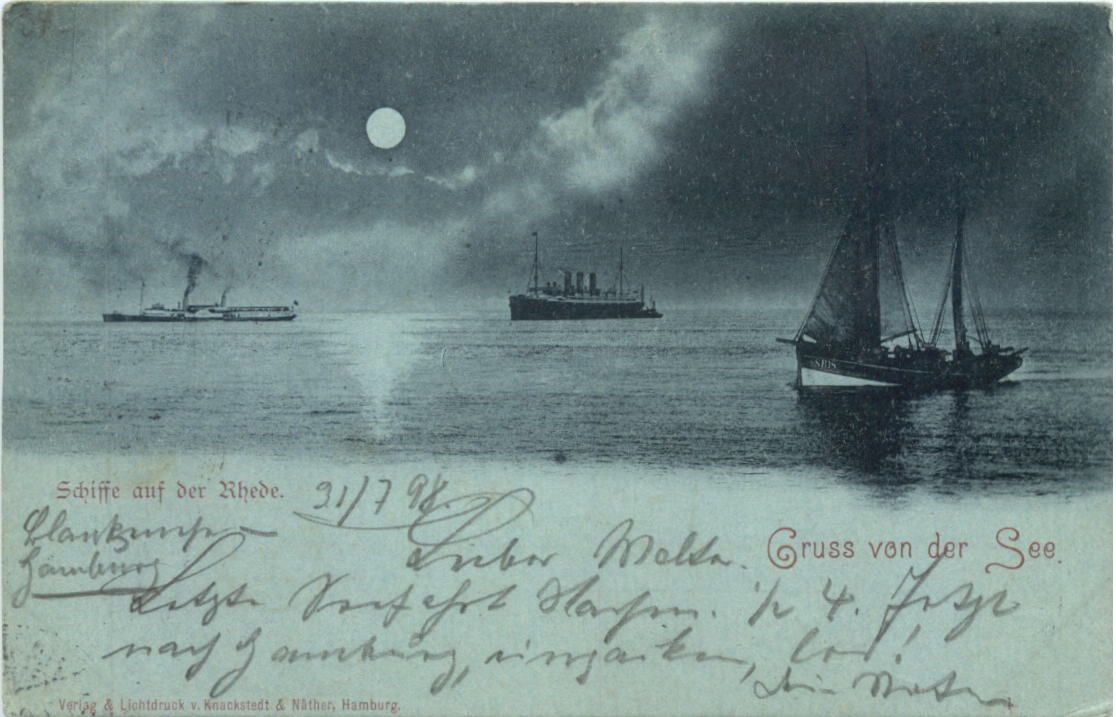 SB18
Schiffe auf der Rhede.
31/7 98.
Blankenese
Hamburg
Gruss von der See.
Lieber Walter.
Letzte Seefahrt 4. Jetzt
nach Hamburg, los!
Dein Vater
Verlag & Lichtdruck v. Knackstedt & Näther, Hamburg.